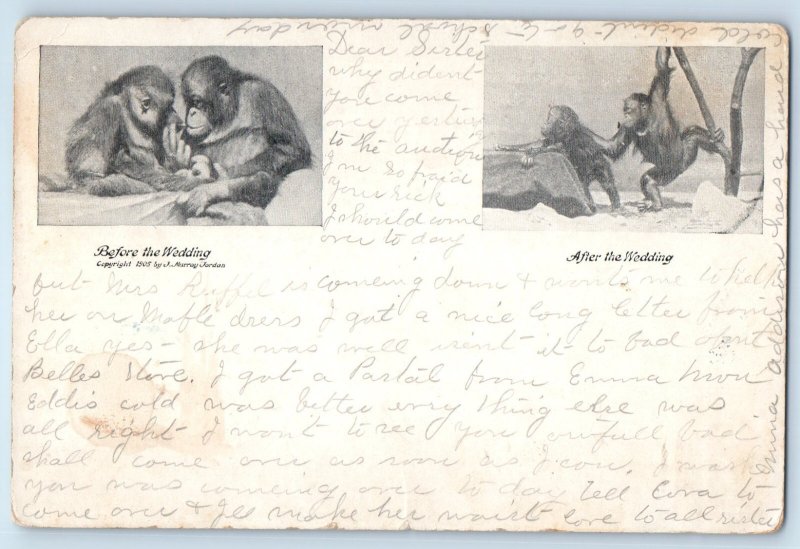 Dear Sister
why dident
you come
over yesterday
to the auction
I'm so fraid
your sick
I should come
over to day
Before the Wedding
Copyright 1905 by J. Murray Jordan
After the Wedding
but Mrs is comeing down & wants me to help
her on dress I got a nice long letter from
Ella yes- she was well isent it to bad about
Belles Stove. I got a Postal from Emma Mon
Eddis cold was better evry thing else was
all right I want to see you awfull bad
shall come over as soon as I can. I wish
you was comeing over to day Tell Cora to
come over & Ill make her waist love to all sister
Emma Addison has a hard
cold dident go to school meriday